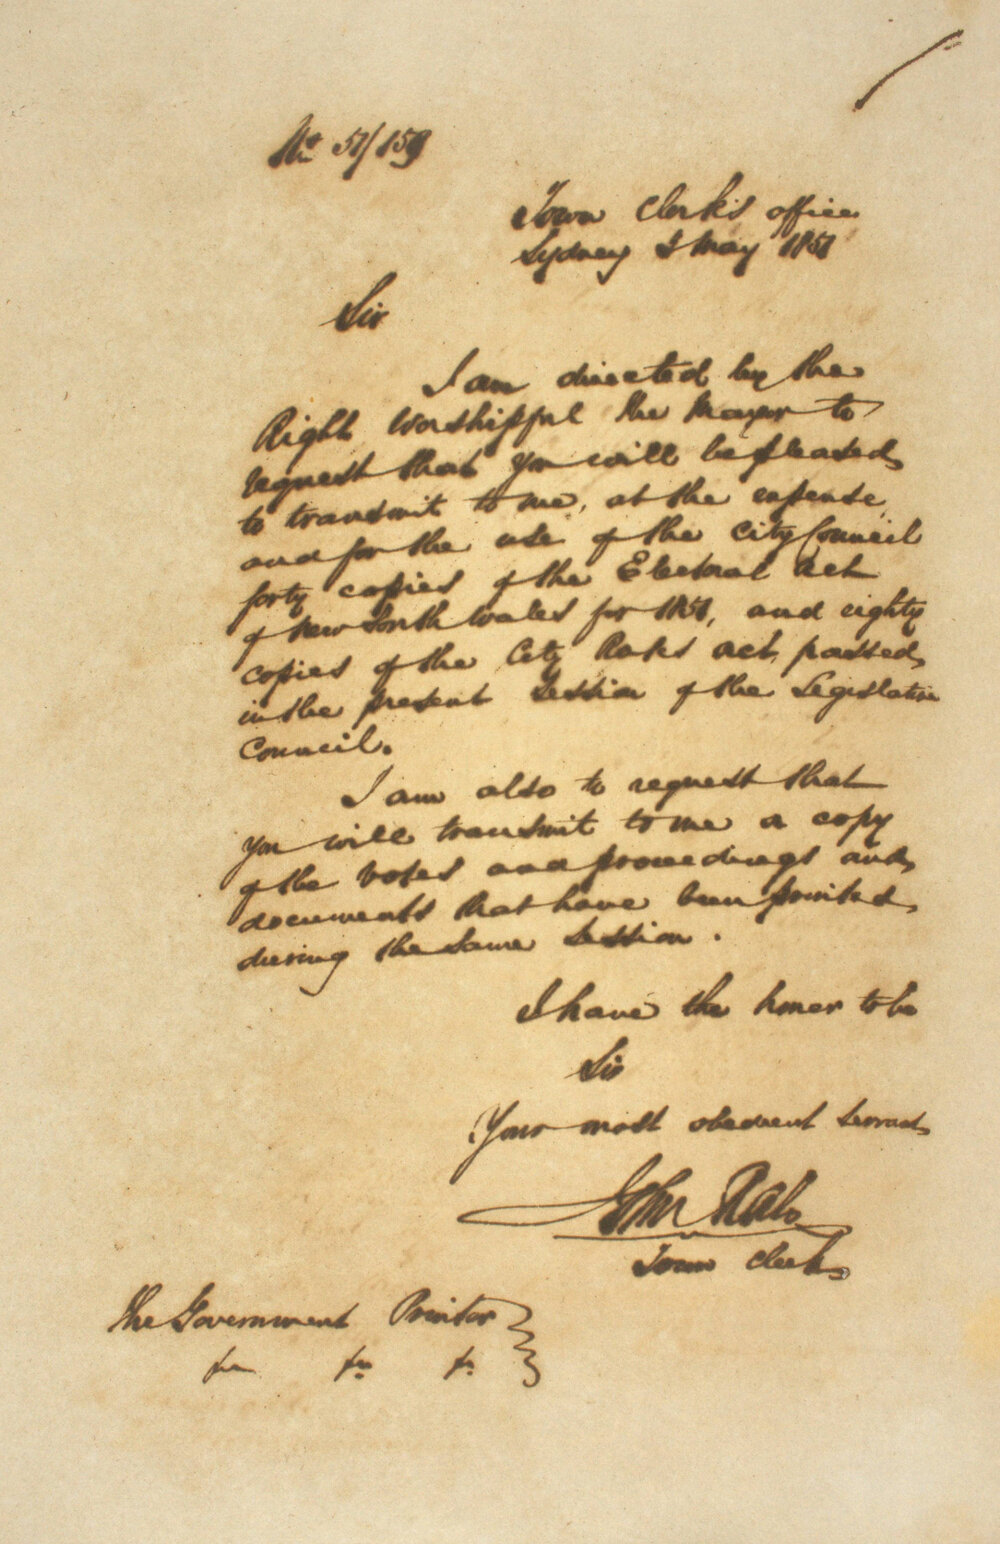 No 51/159
Town Clerk's office
Sydney 2 May 1851
Sir
I am directed by the
Right Worshipful the Mayor to
request that you will be pleased
to transmit to me, at the expense,
and for the use of the City Council
forty copies of the Electoral Act
of New South Wales for 1851, and eighty
copies of the City Rates Act, passed
in the present Session of the Legislative
Council.
I am also to request that
you will transmit to me a copy
of the Votes and proceedings and
documents that have been printed
during the same session.
I have the honor to be
Sir
Your most obedient servant
John Rae
Town Clerk
The Government Printer